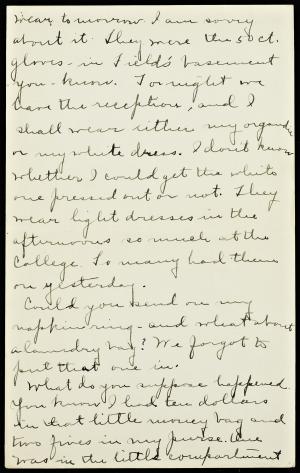 wear tomorrow. I am sorry
about it. They were the 50 ct.
gloves - in Field's basement
you - know. Tonight we
have the reception, and I
shall wear either my organdie
or my white dress. I don't know
whether I could get the white
one pressed out or not. They
wear light dresses in the
afternoons so much at the
College. So many had them
on yesterday.
Could you send on my
napkin ring - and what about
a laundry bag? We forgot to
put that one in.
What do you suppose happened.
You know I had ten dollars
in that little money bag and
two fives in my purse. One
was in the little compartment